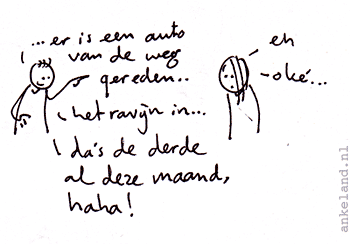 ... er is een auto
van de weg
gereden..
het ravijn in...
da's de derde
al deze maand,
haha!
eh
oké...
ankeland.nl